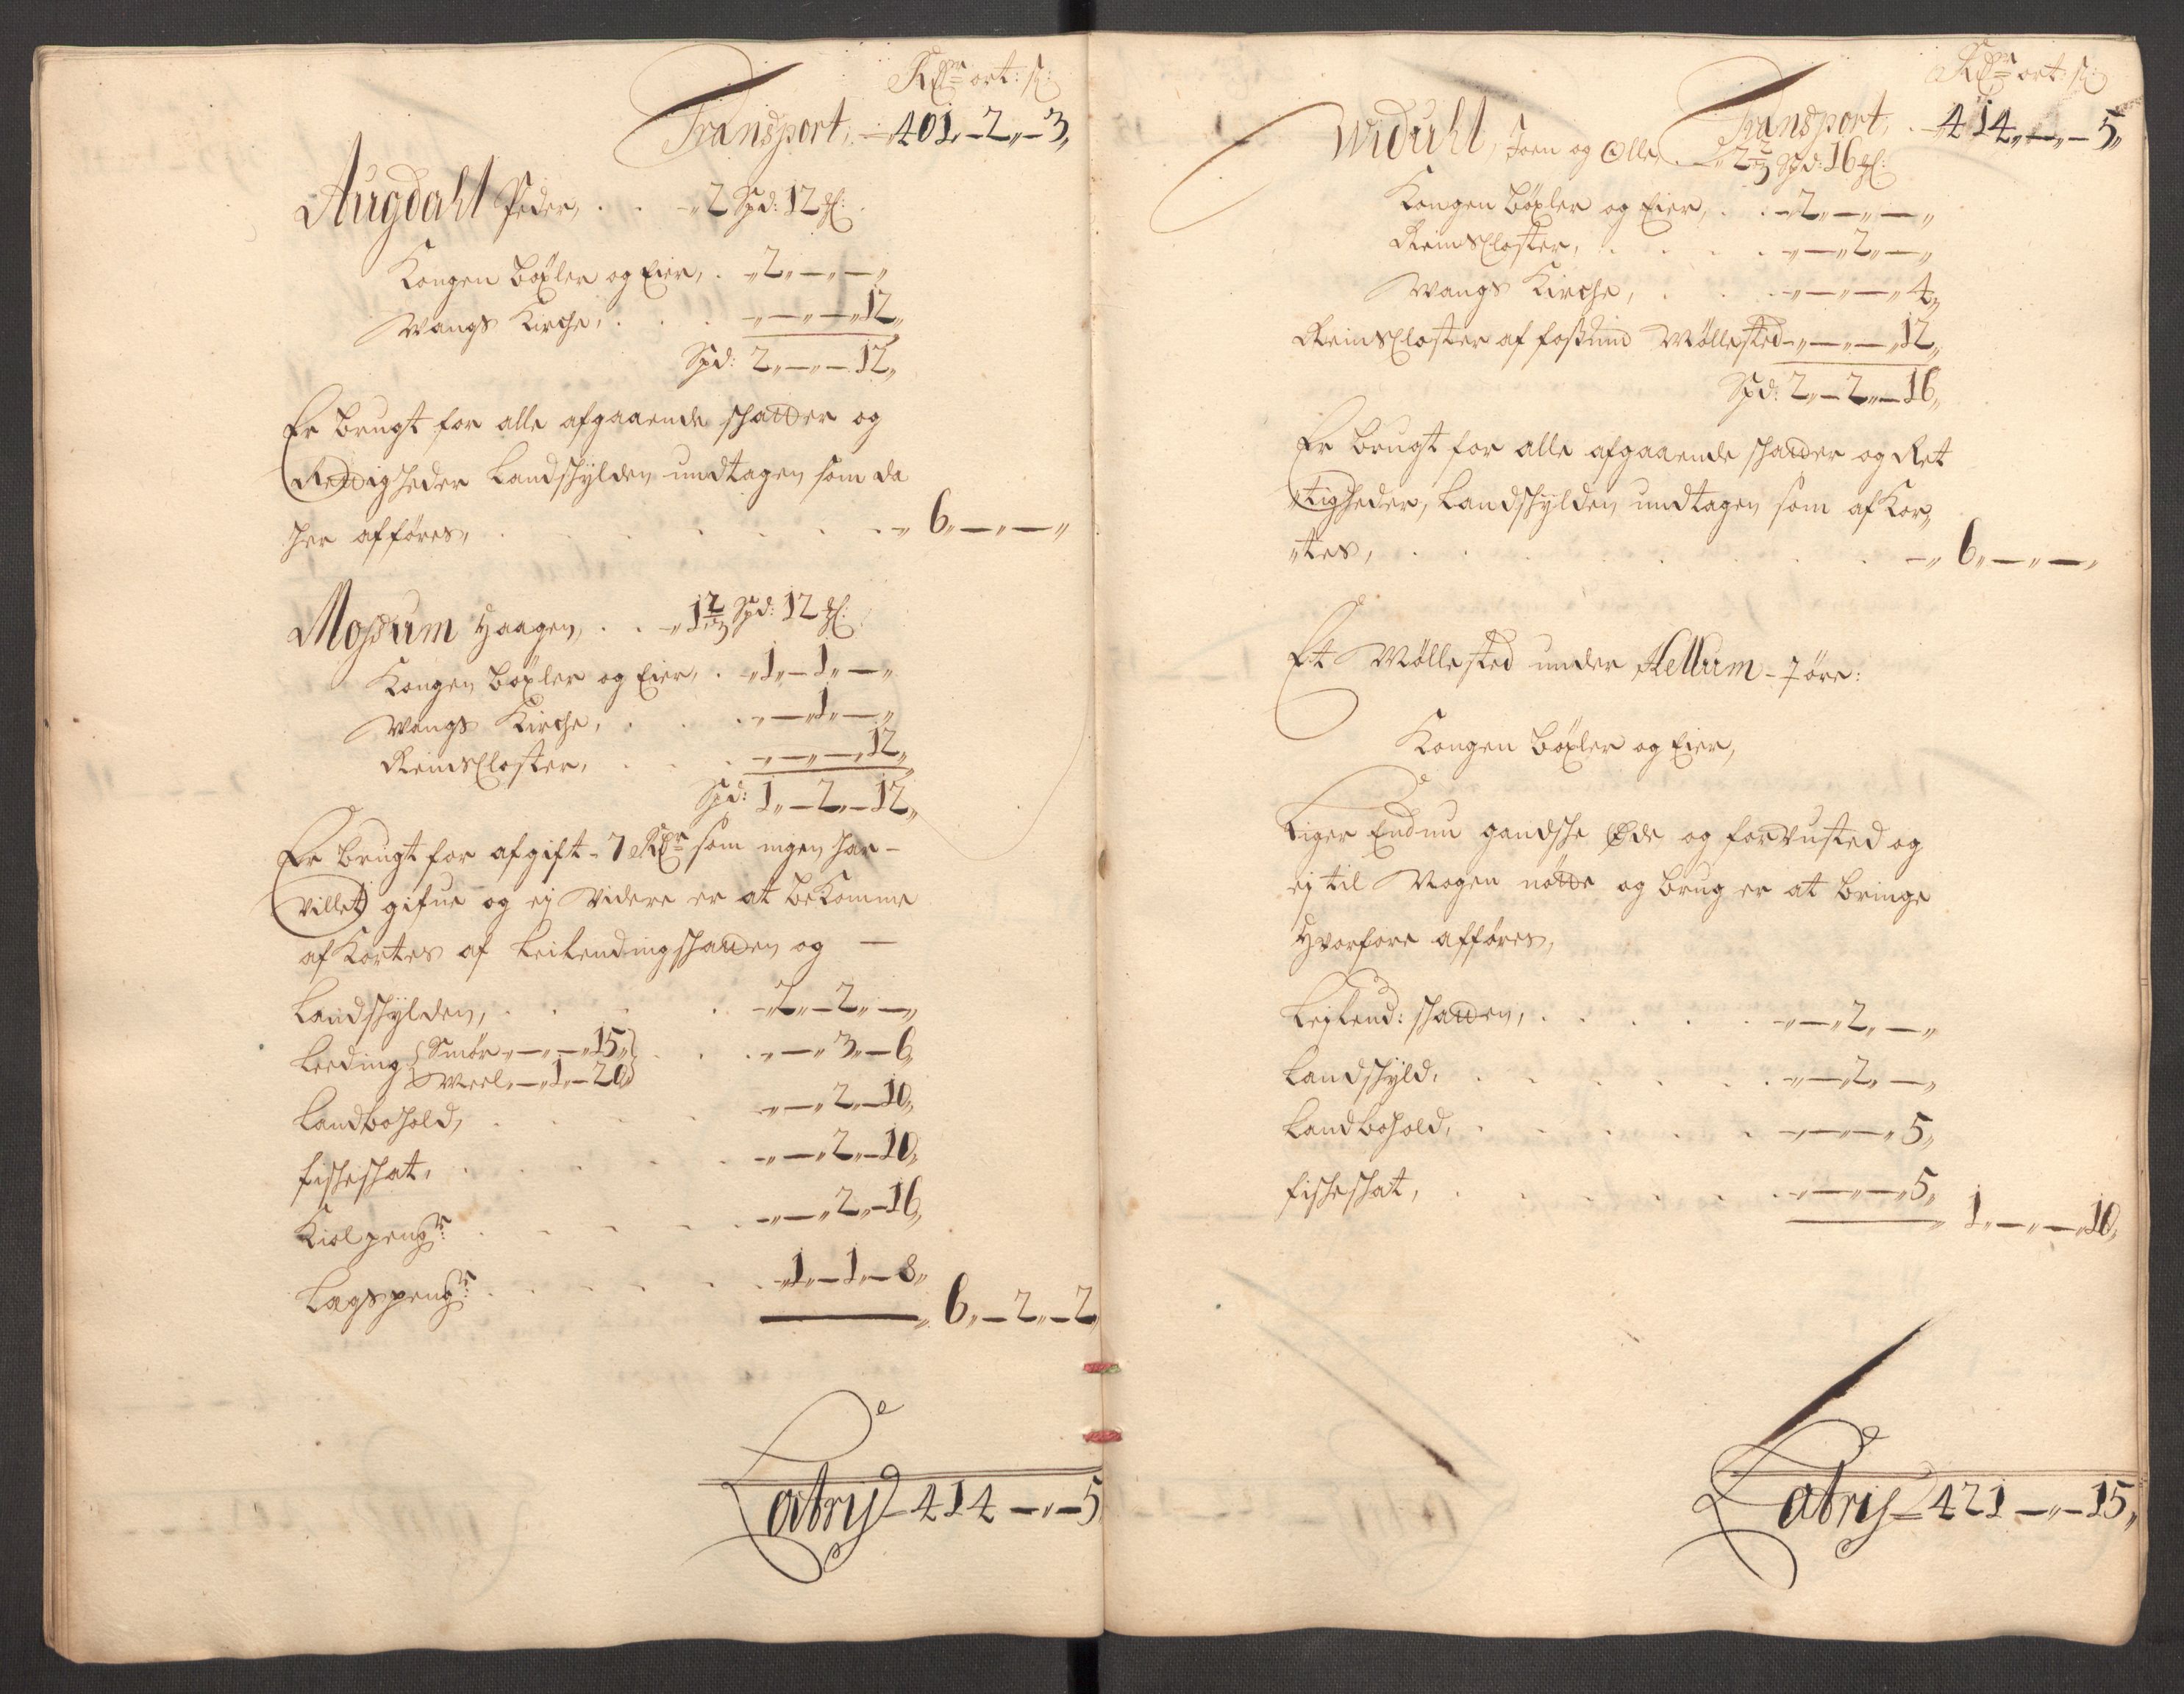 Rdr ort: s:
Transport, - 401 - 2 - 3,
Augdahl Peder, . . - 2 Spd: 12 ℳ:
Kongen böxler og Eier, . - 2 - - -
Wangs Kirche, . . . - - - - 12,
Spd: 2 - - - 12,
Er brugt for alle afgaaende schatter og
Rettigheder Landschylden undtagen som da
her afföres, . . . . . . - 6 - - -
Mossum Haagen, . . - 1 2/3 Spd: 12 ℳ:
Kongen böxler og Eier, . - 1 - 1 - -
Wangs Kirche, . . . - - 1 - -
Reins Closter, . . . - - - - 12,
Spd: 1 - 2 - 12,
Er brugt for afgift - 7 Rdr som ingen har -
villet gifue og ej videre er at bekomme
af Kortes af Leilendingschatten og -
Landschylden, . . . . - 2 - 2 - -
Leeding { Smör - - - 15, } . . . - - 3 - 6,
{ Meel - 1 - 20 }
Landbohold, . . . - - 2 - 10,
fischeschat, . . . . - - 2 - 10,
Kiol pengr: . . . . - - 2 - 16,
Lagspengr: . . . . - 1 - 1 - 8,
6 - 2 - 2
Latrij - 414 - - 5
Rdr ort: s:
Transport, - 414 - - - 5,
Widuhl, Joen og Olle, - 2 2/3 Spd: 16 ℳ:
Kongen böxler og Eier, . - 2 - - -
Reins Closter, . . . . - - 2 - -
Wangs Kirche, . . . - - - - 4,
Reins Closter af Fossum Möllested - - - - 12,
Spd: 2 - 2 - 16,
Er brugt for alle afgaaende schatter og Ret
tigheder, Landschylden undtagen som af Kor,
tes, . . . . . . . - 6 - - -
Et Möllested under Hellum - 7 öre:
Kongen böxler og Eier,
Liger Endnu gandsche Øde og forrusted og
ej til Nogen nötte og brug er at bringe
Hvorfore afföres,
Lejlend: schatten, . . . . . - - 2 - -
Landschyld, . . . . . . - - 2 - -
Landbohold, . . . . . . - - - - 5,
fischeschat, . . . . . . - - - - 5,
1 - - - 10,
Latrij - 421 - - 15,